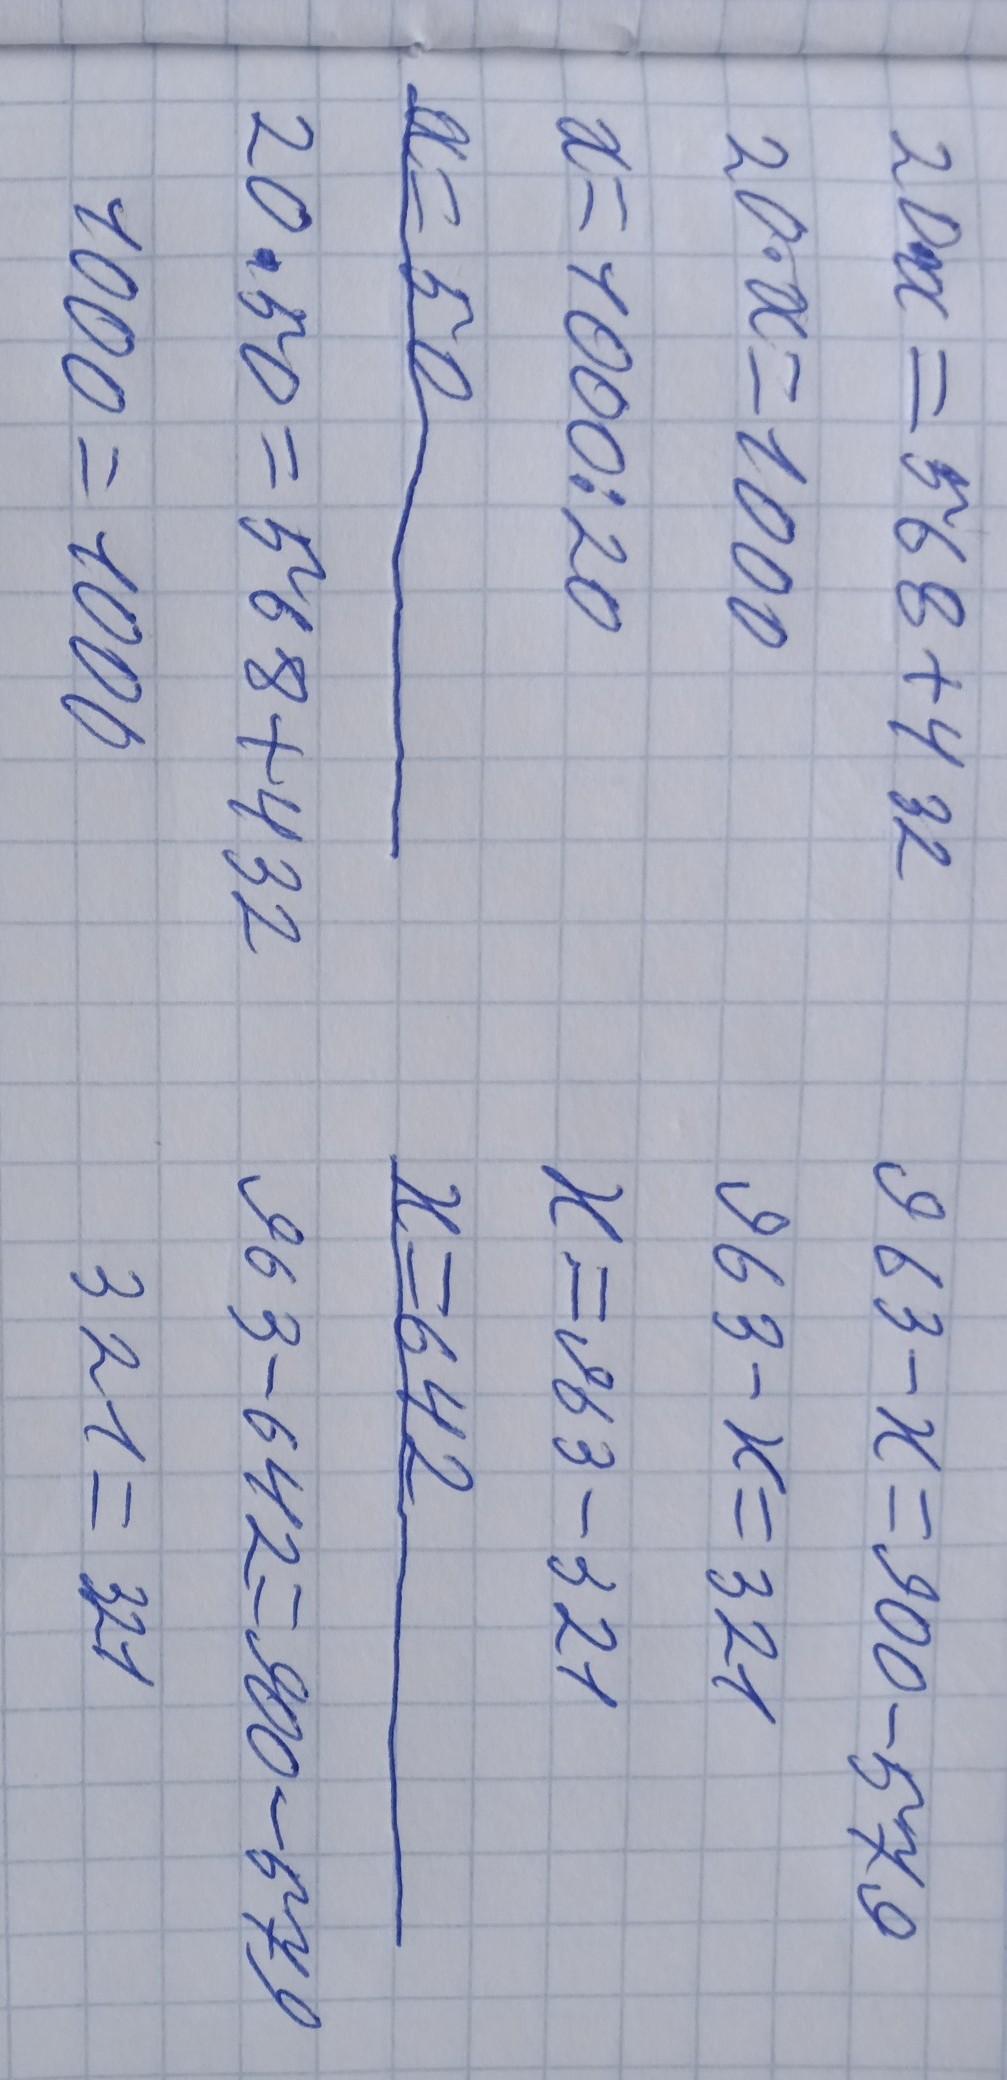 20·x=568+432
20·x=1000
x=1000:20
x=50
20·50=568+432
1000=1000
963-x=900-579
963-x=321
x=963-321
x=642
963-642=900-579
321=321